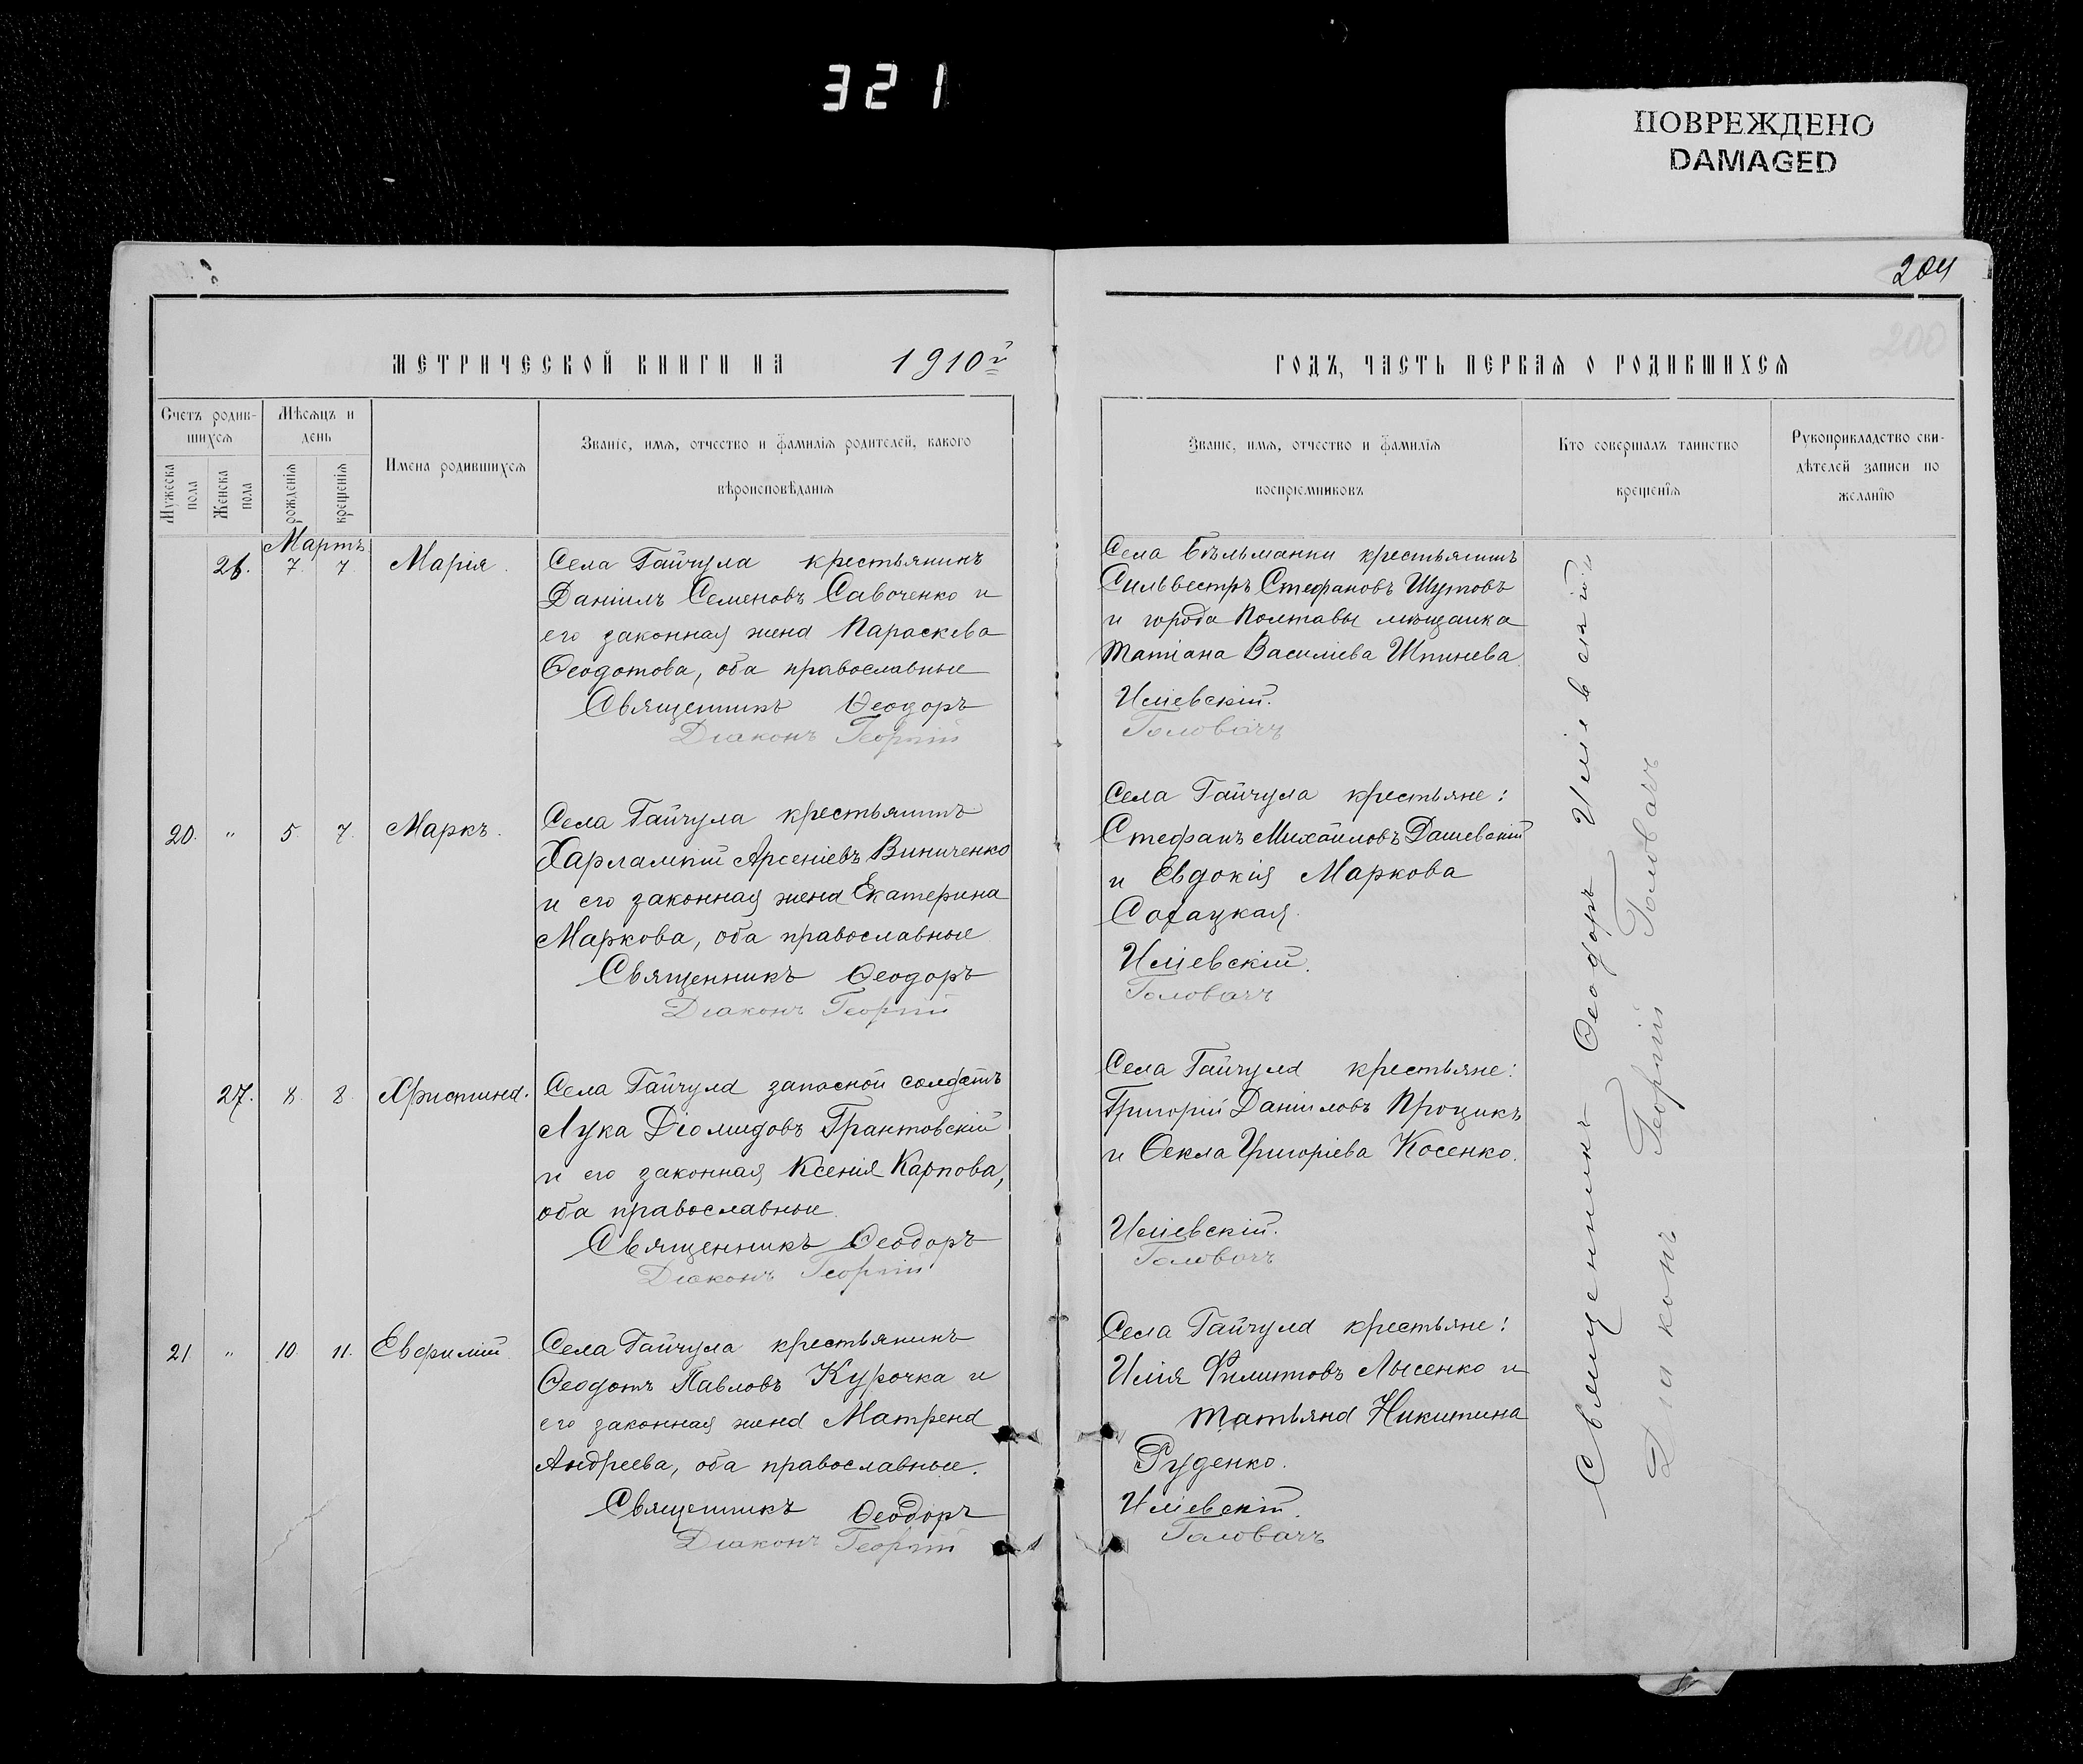 321
ПОВРЕЖДЕНО
DAMAGED
204
200
МЕТРИЧЕСКОЙ КНИГИ НА 1910й
ГОДЪ, ЧАСТЬ ПЕРВАЯ О РОДИВШИХСЯ
Счетъ родив-
шихся
Мѣсяцъ и
день
Мужеска
пола
Женска
пола
рожденія
крещенія
Имена родившихся
Званіе, имя, отчество и фамилія родителей, какого
вѣроисповѣданія
Званіе, имя, отчество и фамилія
воспріемниковъ
Кто совершалъ таинство
крещенія
Рукоприкладство сви-
дѣтелей записи по
желанію
Мартъ
26. 7. 7. Марія.
Села Гайчула крестьянинъ
Даніилъ Семеновъ Савоченко и
его законная жена Параскева
Ѳеодотова, оба православные
Священникъ Ѳеодоръ
Діаконъ Георгій
Села Бѣльманки крестьянинъ
Сильвестръ Стефановъ Шутовъ
и города Полтавы мѣщанка
Татіана Василіева Шпинева
Иліевскій.
Головачъ
20. " 5. 7. Маркъ.
Села Гайчула крестьянинъ
Харлампій Арсеніевъ Виниченко
и его законная жена Екатерина
Маркова, оба православные
Священникъ Ѳеодоръ
Діаконъ Георгій
Села Гайчула крестьяне:
Стефанъ Михайловъ Дашевскій
и Евдокія Маркова
Иліевскій.
Головачъ
27. 8. 8. Христина.
Села Гайчула запасной солдатъ
Лука Діомидовъ Грантовскій
и его законная Ксенія Карпова,
оба православные
Священникъ Ѳеодоръ
Діаконъ Георгій
Села Гайчула крестьяне:
Григорій Даніиловъ Процикъ
и Ѳекла Григоріева Косенко.
Иліевскій.
Головачъ
21. " 10. 11. Евфимій
Села Гайчула крестьянинъ
Ѳеодотъ Павловъ Курочка и
его законная жена Матрена
Андреева, оба православные.
Священникъ Ѳеодоръ
Діаконъ Георгій
Села Гайчула крестьяне:
Илія Филиповъ Лысенко и
Татьяна Никитина
Руденко.
Иліевскій.
Головачъ
Священникъ Ѳеодоръ Иліевскій
Діаконъ Георгій Головачъ